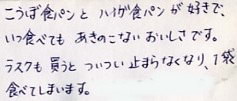 こうぼ食パンと ハイガ食パンが好きで、
いつ食べても あきのこない おいしさです。
ラスクも 買うと ついつい 止まらなくなり、1袋
食べてしまいます。